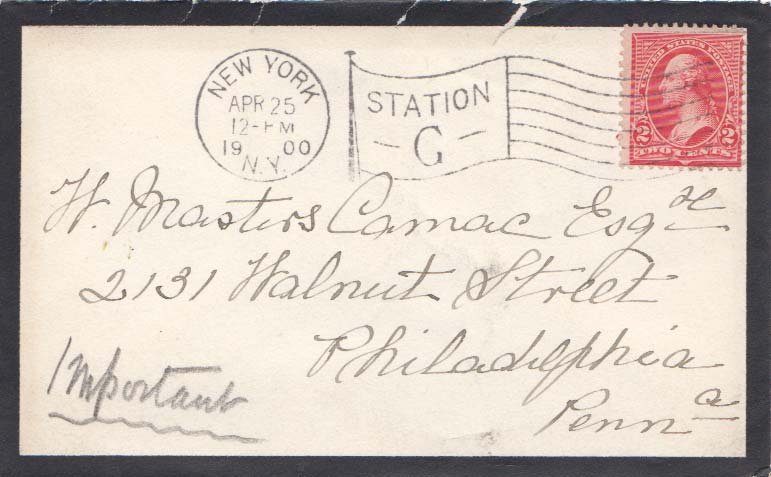 NEW YORK
APR 25
12-PM
19 00
N.Y.
STATION
G
UNITED STATES POSTAGE
2 2
TWO CENTS
W. Masters Camac Esqre
2131 Walnut Street
Philadelphia
Penna
Important